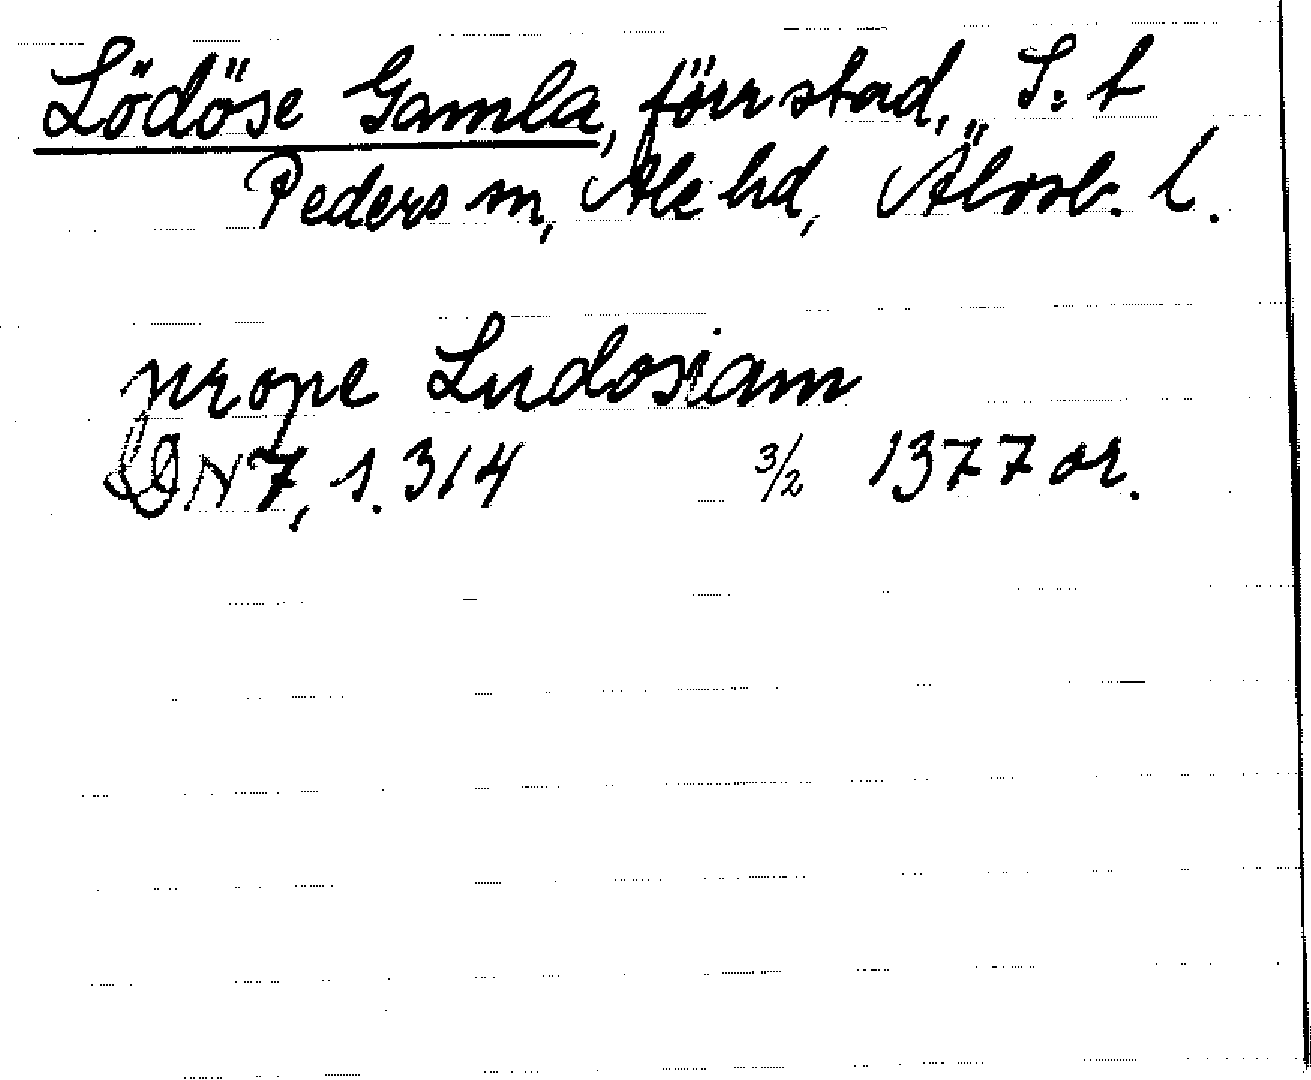 Lödöse Gamla, förr stad, S:t
Peders sn, Ale hd, Älvsb. l.
prope Ludosiam
DN 7, 1. 314 3/2 1377 or.